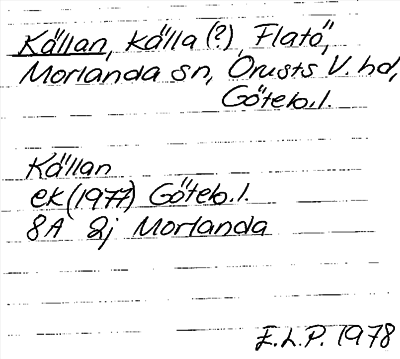 Källan, källa (?), Flatö,
Morlanda sn, Orusts V. hd,
Göteb.l.
Källan
ek (1977) Göteb.l.
8A 2j Morlanda
E.L.P. 1978